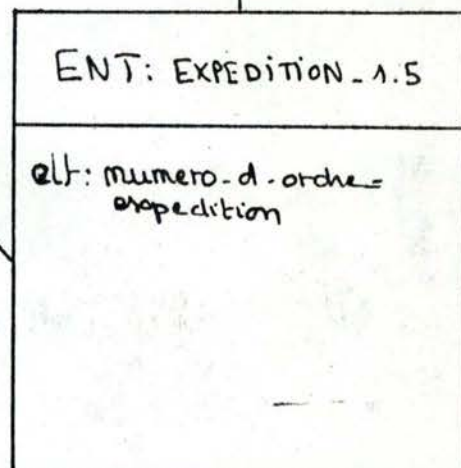 ENT: EXPEDITION_1.5
elt: numero-d-ordre-
expedition